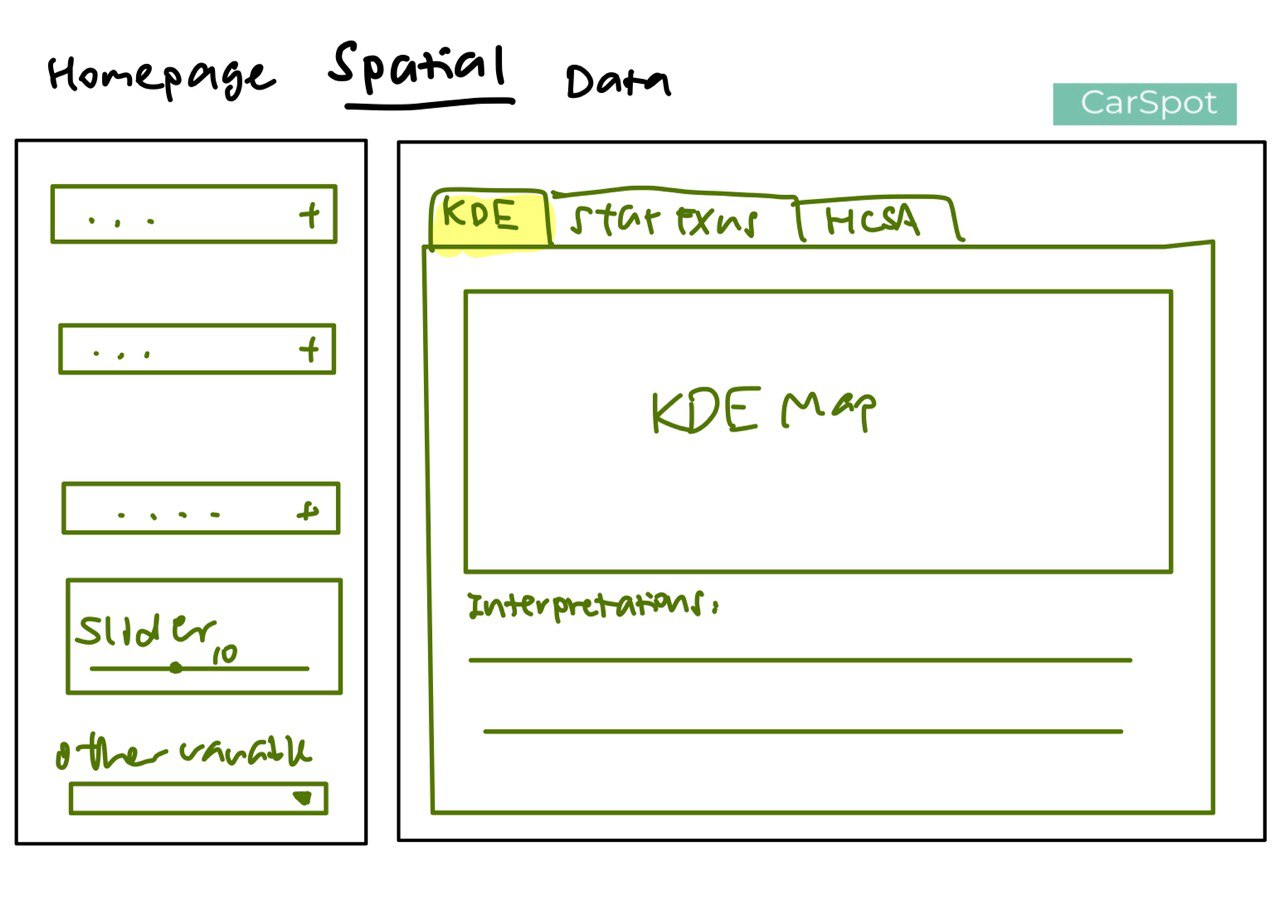 Homepage Spatial Data
CarSpot
... +
... +
.... +
Slider
10
other variable
KDE
HCSA
KDE Map
Interpretations: